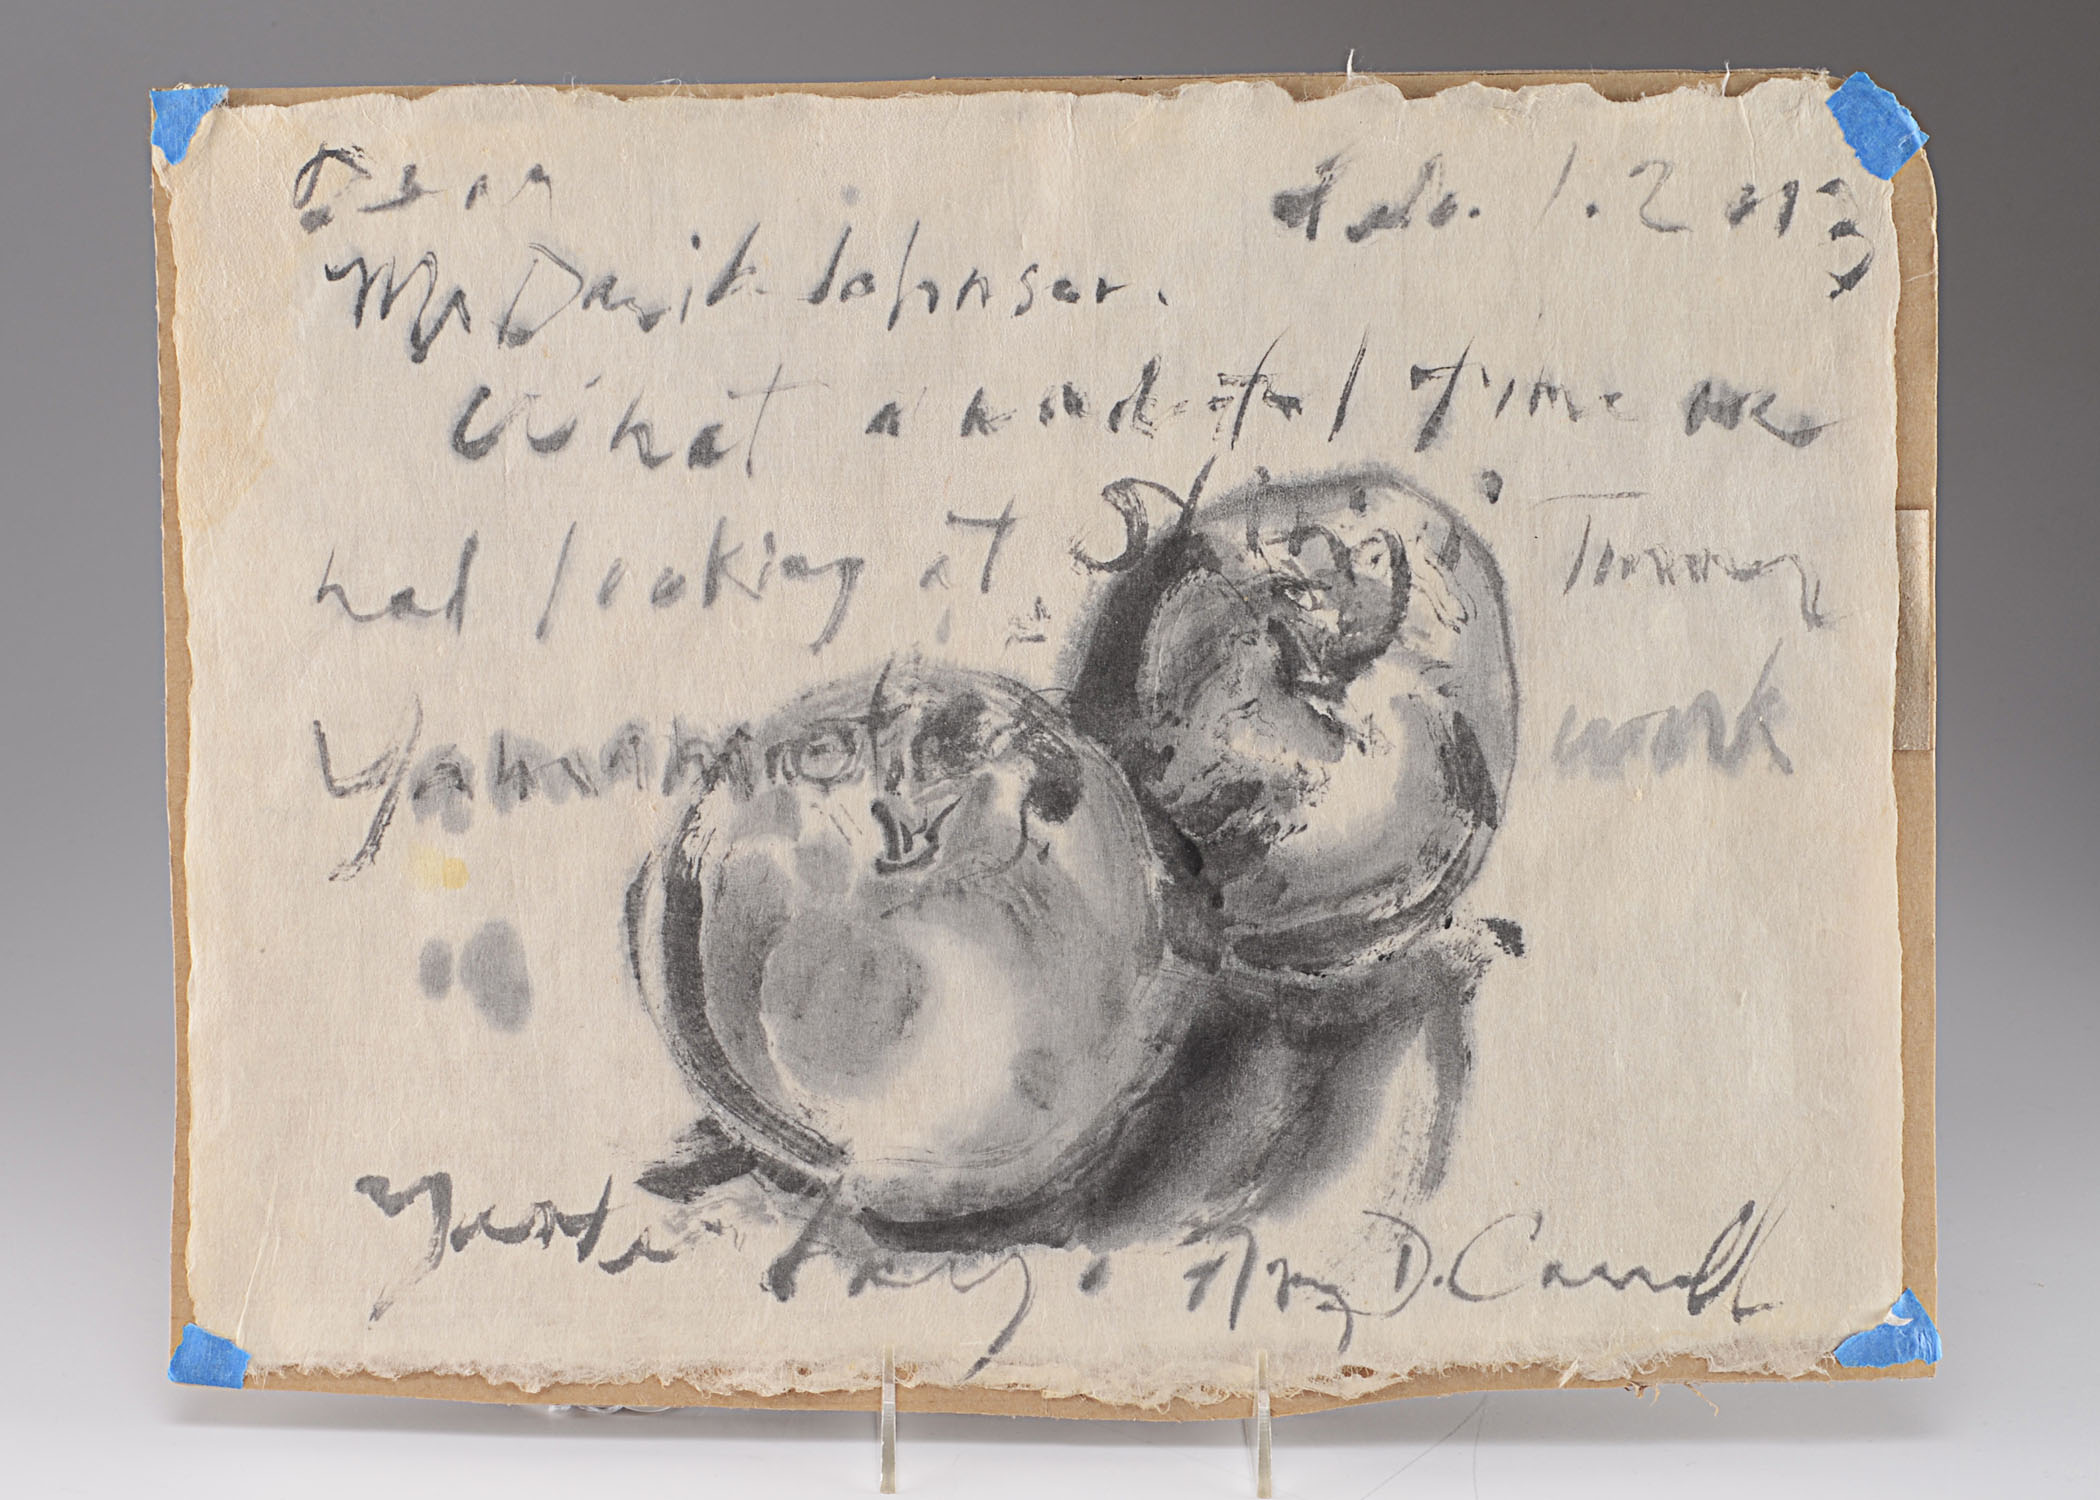 Dear
Feb. 1. 2013
Mr David Johnson.
What a wonderful time we
had looking at Tommy
Yamamoto work
D. Carroll